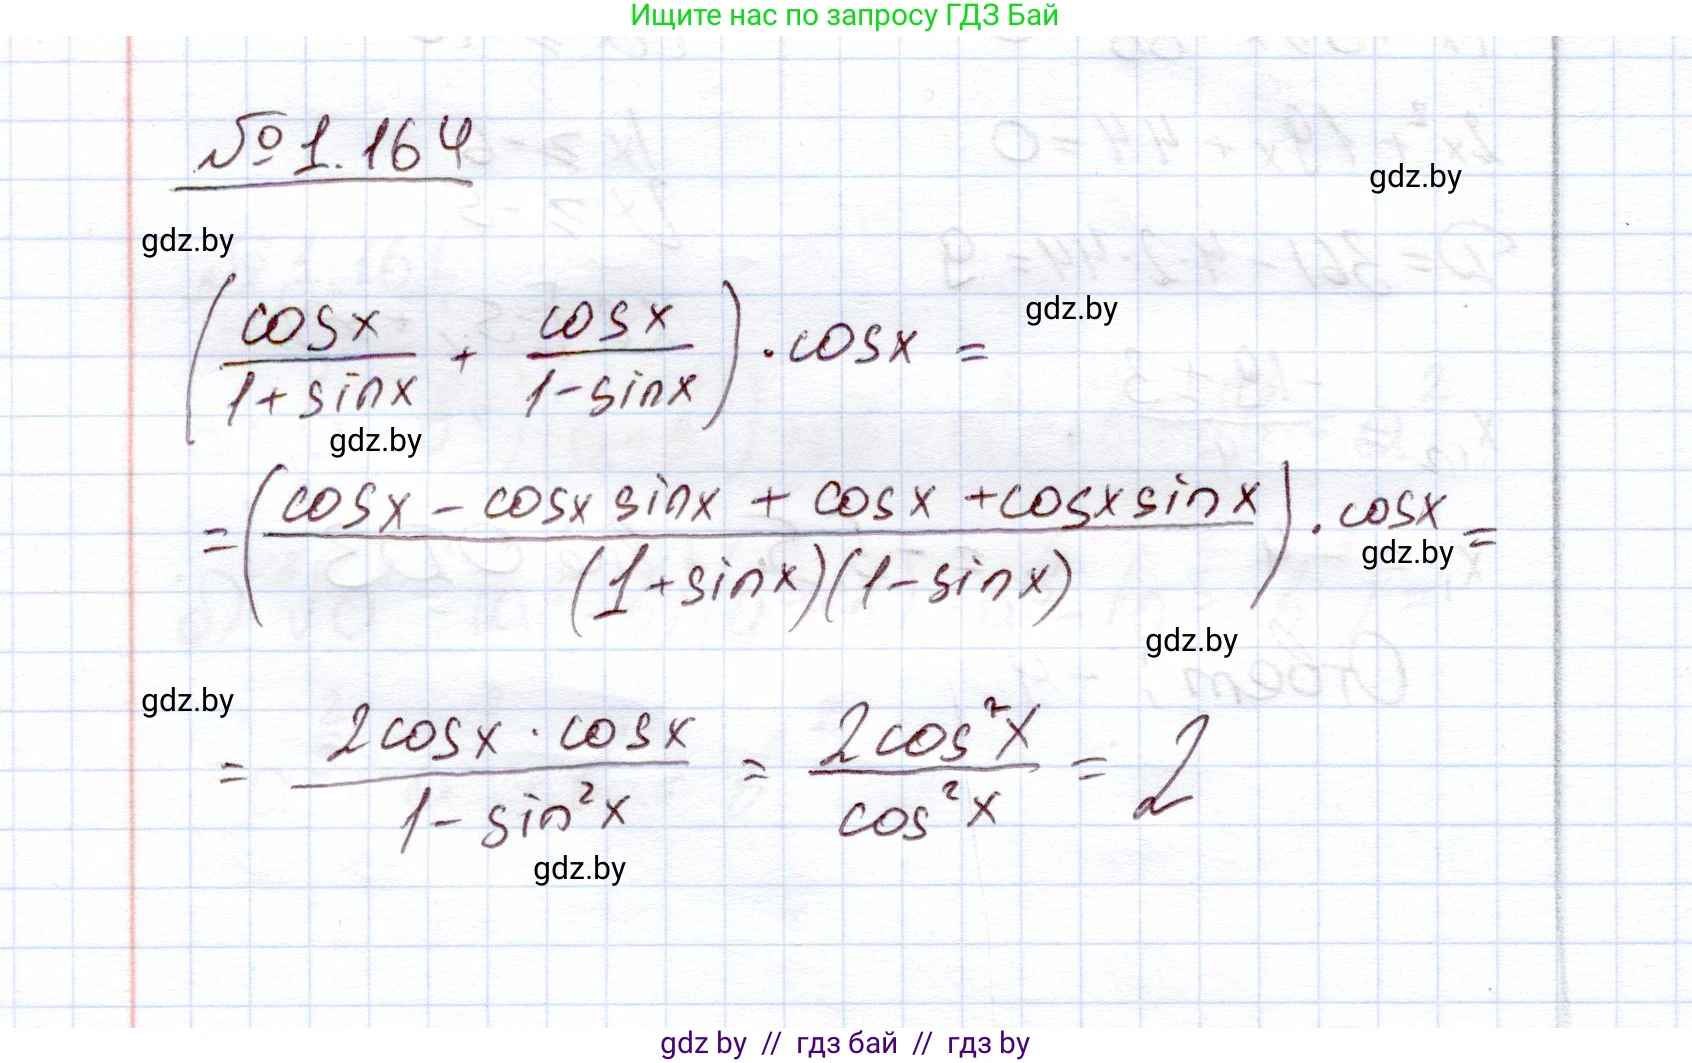 Ищите нас по запросу ГДЗ Бай
№ 1.164
gdz.by
gdz.by
(cosx/(1+sinx) + cosx/(1-sinx)) · cosx =
gdz.by
gdz.by
= ((cosx - cosx sinx + cosx + cosx sinx)/((1+sinx)(1-sinx))) · cosx =
gdz.by
gdz.by
gdz.by
= (2cosx · cosx)/(1 - sin²x) = (2cos²x)/(cos²x) = 2
gdz.by
gdz by // гдз бай // гдз by